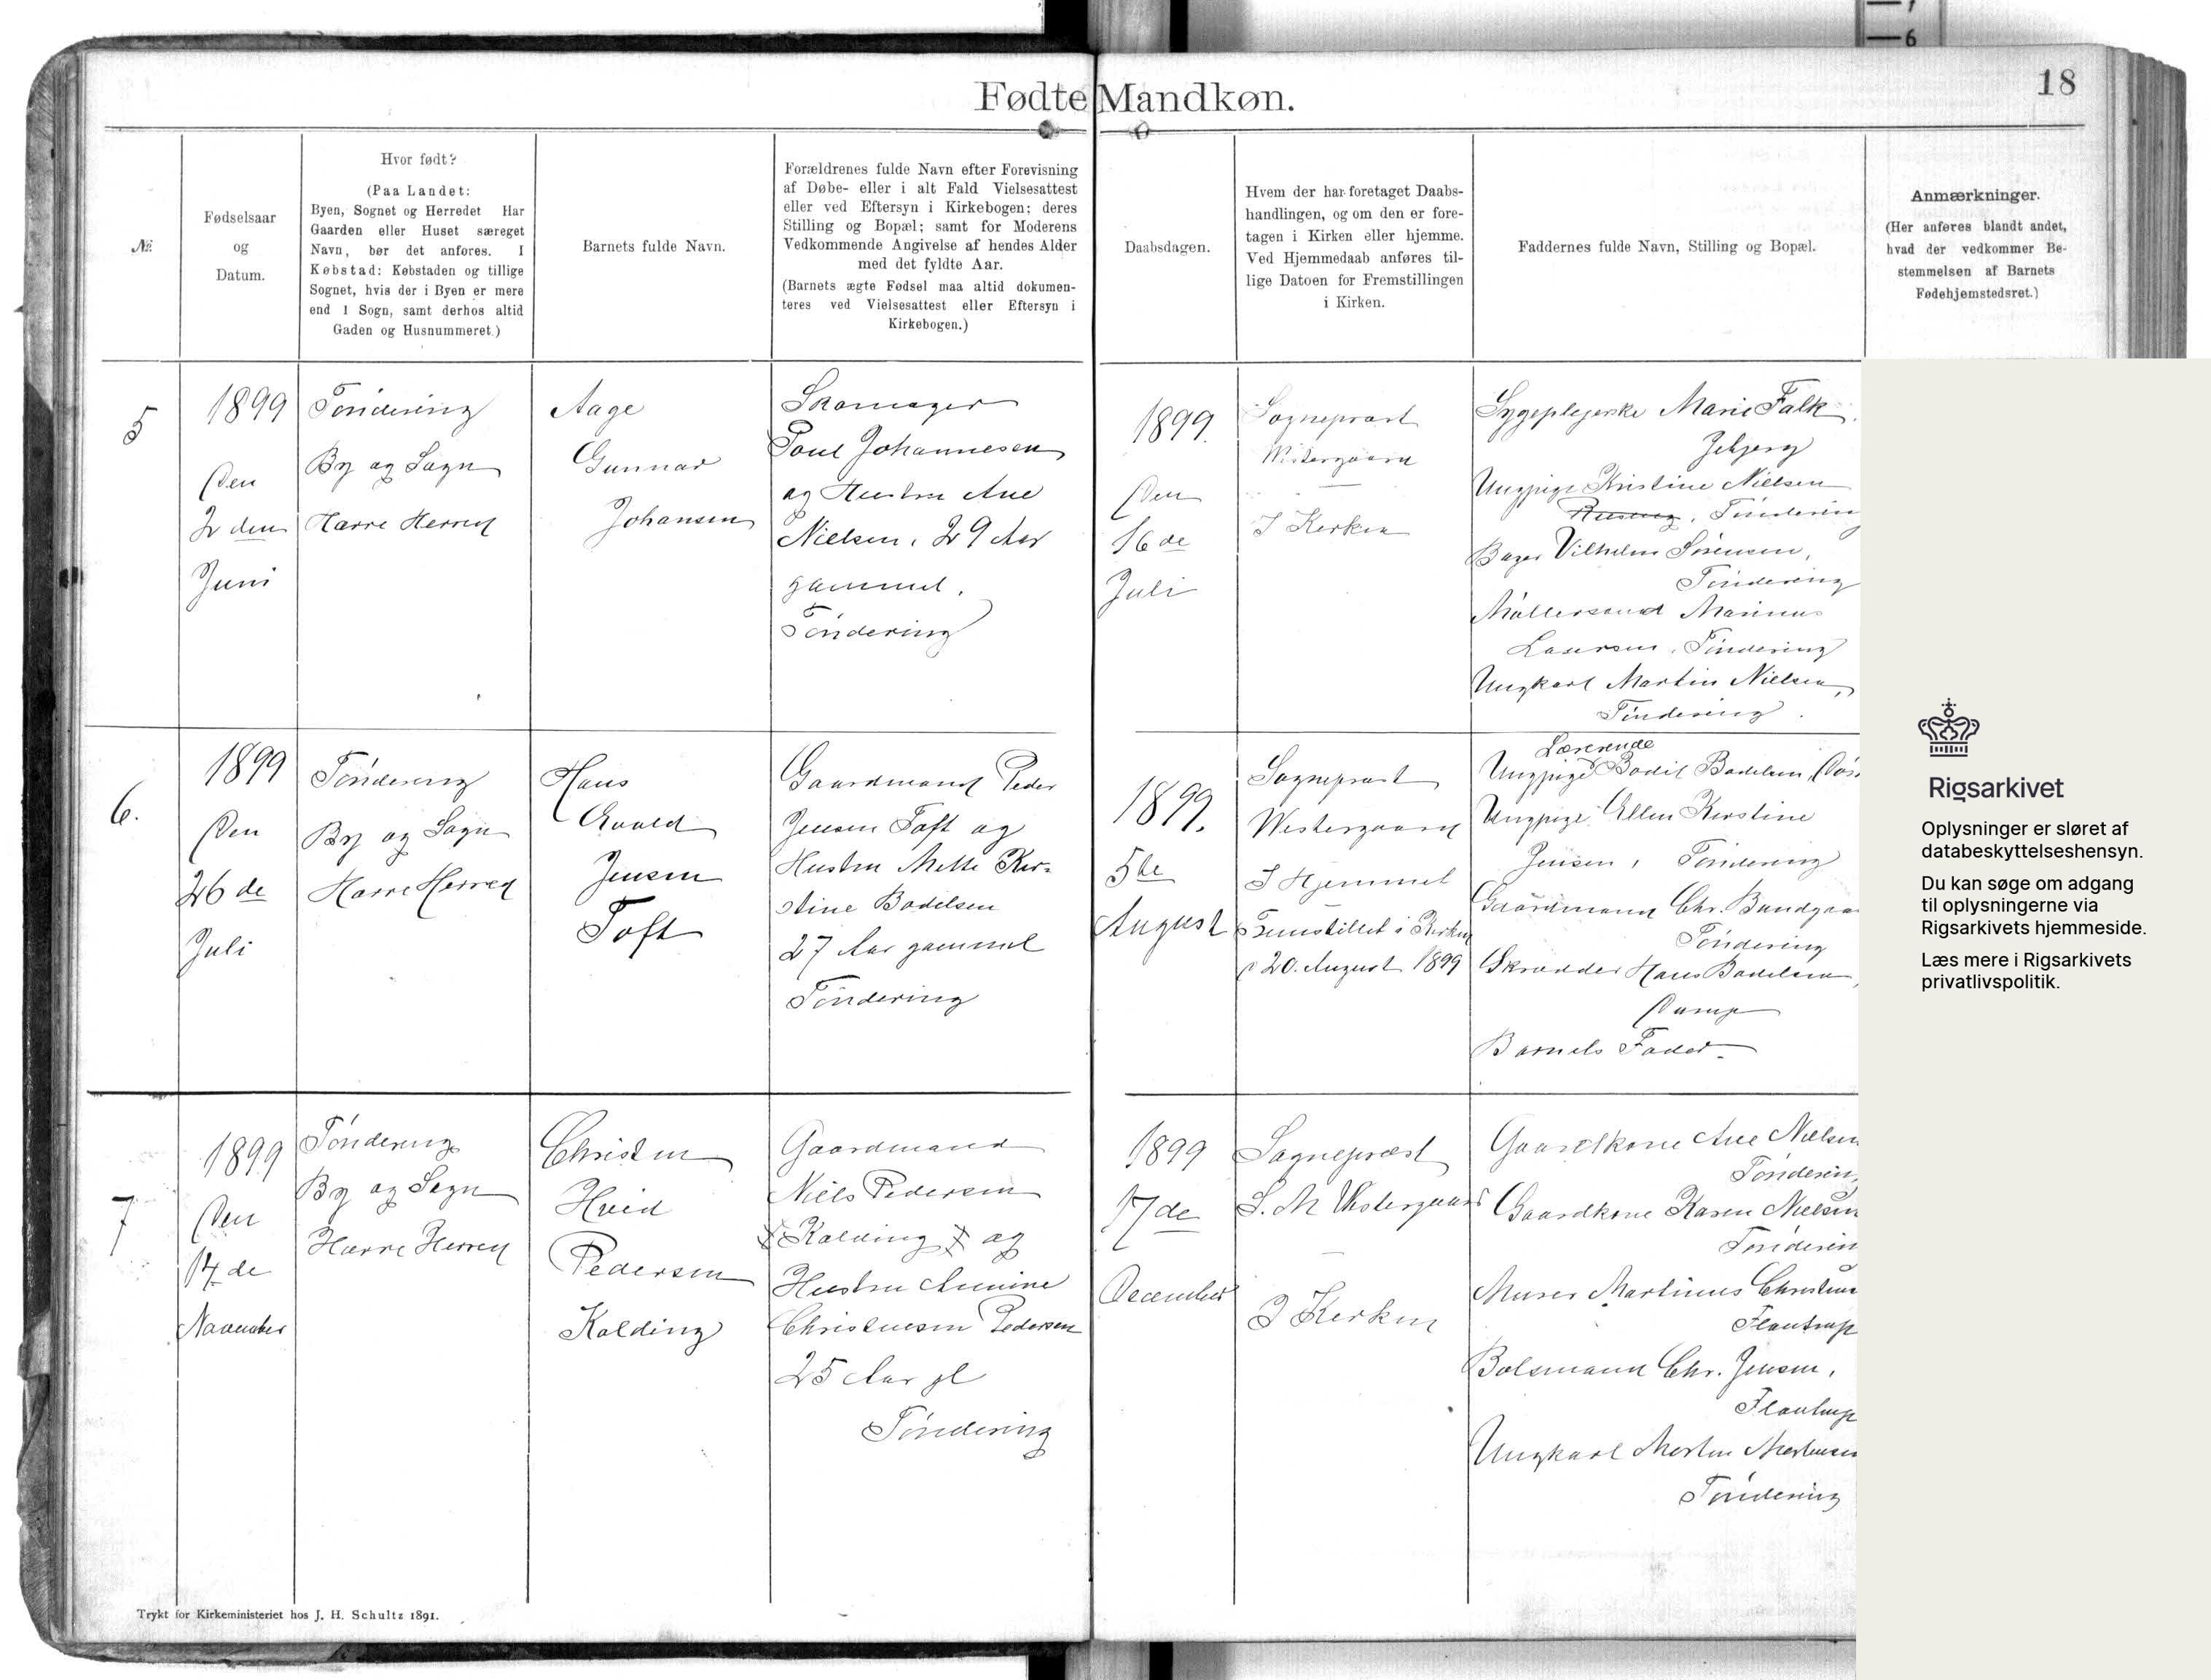 7
6
Fødte Mandkøn.
18
№
Fødselsaar
og
Datum.
Hvor født?
(Paa Landet:
Byen, Sognet og Herredet Har
Gaarden eller Huset særeget
Navn, bør det anføres. I
Købstad: Købstaden og tillige
Sognet, hvis der i Byen er mere
end 1 Sogn, samt derhos altid
Gaden og Husnummeret.)
Barnets fulde Navn.
Forældrenes fulde Navn efter Forevisning
af Døbe- eller i alt Fald Vielsesattest
eller ved Eftersyn i Kirkebogen; deres
Stilling og Bopæl; samt for Moderens
Vedkommende Angivelse af hendes Alder
med det fyldte Aar.
(Barnets ægte Fødsel maa altid dokumen-
teres ved Vielsesattest eller Eftersyn i
Kirkebogen.)
Daabsdagen.
Hvem der har foretaget Daabs-
handlingen, og om den er fore-
tagen i Kirken eller hjemme.
Ved Hjemmedaab anføres til-
lige Datoen for Fremstillingen
i Kirken.
Faddernes fulde Navn, Stilling og Bopæl.
Anmærkninger.
(Her anføres blandt andet,
hvad der vedkommer Be-
stemmelsen af Barnets
Fødehjemstedsret.)
5
1899
Den
2 den
Juni
Tøndering
By og Sogn
Harre Herred
Aage
Gunnar
Johansen
Skomager
Poul Johannesen
og Hustru Ane
Nielsen, 29 Aar
gammel.
Tøndering
1899.
Den
16 de
Juli
Sognepræst
Westergaard
I Kirken
Sygeplejerske Marie Falk
Jebjerg
Ungpige Kristine Nielsen
Tønderin
Bager Vilhelm Sørensen,
Tøndering
Møllersvend Marinus
Laursen, Tøndering
Ungkarl Martin Nielsen,
Tøndering.
6.
1899
Den
26 de
Juli
Tøndering
By og Sogn
Harre Herred
Hans
Evald
Jensen
Toft
Gaardmand Peder
Jensen Toft og
Hustru Mette Kir-
stine Bodilsen
27 Aar gammel
Tøndering
1899.
5te
August
Sognepræst
Westergaard
I Hjemmet
Fremstillet i Kirken
d 20. August 1899
Lærerinde
Ungpige Bodil Bodilsen,
Ungpige Ellen Kirstine
Jensen, Tøndering
Gaardmand Chr. Bundgaa
Tøndering
Skrædder Hans Bodilsen,
Durup
Barnets Fader.
7
1899
Den
14 de
November
Tøndering
By og Sogn
Harre Herred
Christen
Hvid
Pedersen
Kolding
Gaardmand
Niels Pedersen
Kolding og
Hustru Annine
Christensen Pedersen
25 Aar gl
Tøndering
1899
17 de
December
Sognepræst
S. M Westergaard
I Kirken
Gaardkone Ane Nielsen
Tønderin
Gaardkone Karen Nielsen
Tønderin
Murer Martinus Christens
Floutrup
Bolsmand Chr. Jensen,
Floutrup
Ungkarl Morten Mortensen
Tøndering
Trykt for Kirkeministeriet hos J. H. Schultz 1891.
Rigsarkivet
Oplysninger er sløret af
databeskyttelseshensyn.
Du kan søge om adgang
til oplysningerne via
Rigsarkivets hjemmeside.
Læs mere i Rigsarkivets
privatlivspolitik.